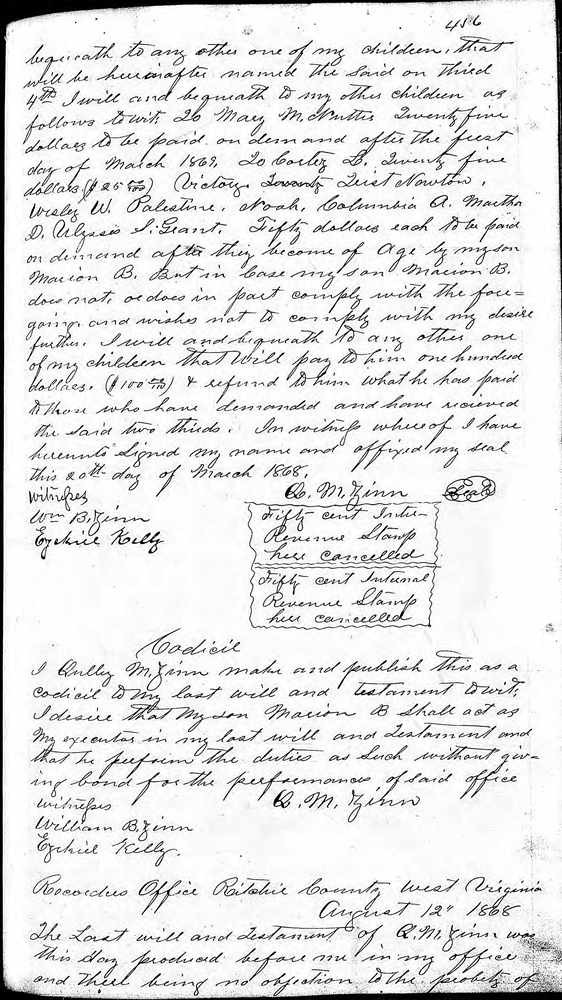 416
bequeath to any other one of my children, that
will be hereinafter named the said on third
4th I will and bequeath to my other children as
follows to wit, To Mary M. Nuttie Twenty five
dollars to be paid on demand after the first
day of March 1869, To Cortez L. Twenty five
dollars ($25 00/100) Victory Twenty Teist Newton,
Wesley W. Palestine, Noah, Columbia A. Martha
D. Ulyssis S. Grant, Fifty dollars each to be paid
on demand after they become of Age by my son
Marion B. But in Case my son Marion B.
does not, or does in part comply with the fore=
going, and wishes not to comply with my desire
further. I will and bequeath to any other one
of my children that will pay to him one hundred
dollars, ($100 00/100) & refund to him what he has paid
to those who have demanded and have recieved
the said two thirds. In witness whereof I have
hereunto Signed my name and affixed my seal
this 20th day of March 1868,
witnesses Q. M. Zinn Seal
Wm B. Zinn
Ezekiel Kelly
Fifty cent Inter-
Revenue Stamp
here cancelled
Fifty cent Internal
Revenue Stamp
here cancelled
Codicil
I Qulley M. Zinn make and publish this as a
codicil to my last will and testament to wit;
I desire that My son Marion B shall act as
My executor in my last will and testament and
that he perform the duties as such without giv=
ing bond for the performance of said office
witnesses Q. M. Zinn
William B. Zinn
Ezekiel Kelly.
Recorders Office Ritchie County West Virginia
August 12" 1868
The Last will and testament of Q. M. Zinn was
this day produced before me in my office
and there being no objection to the probety of